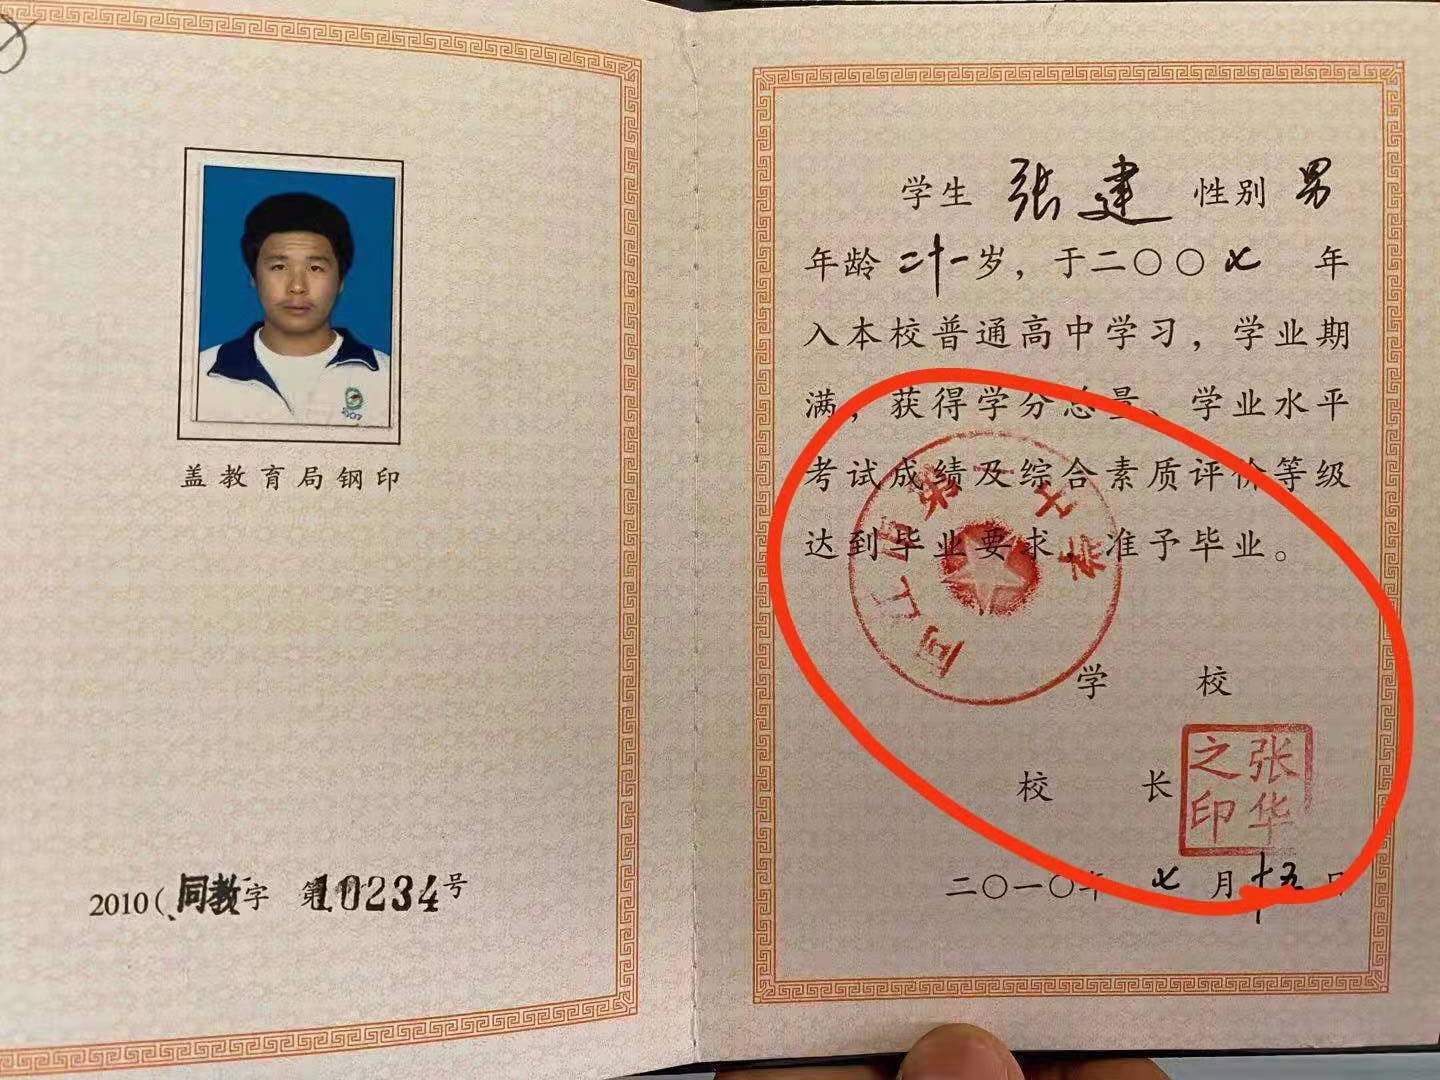 盖教育局钢印
2010(同教字 第10234号
学生 张建 性别 男
年龄二十一岁，于二〇〇七 年
入本校普通高中学习，学业期
满，获得学分总量、学业水平
考试成绩及综合素质评价等级
达到毕业要求，准予毕业。
同江市第一中学
学 校
校 长
张华之印
二〇一〇年 七 月十五日